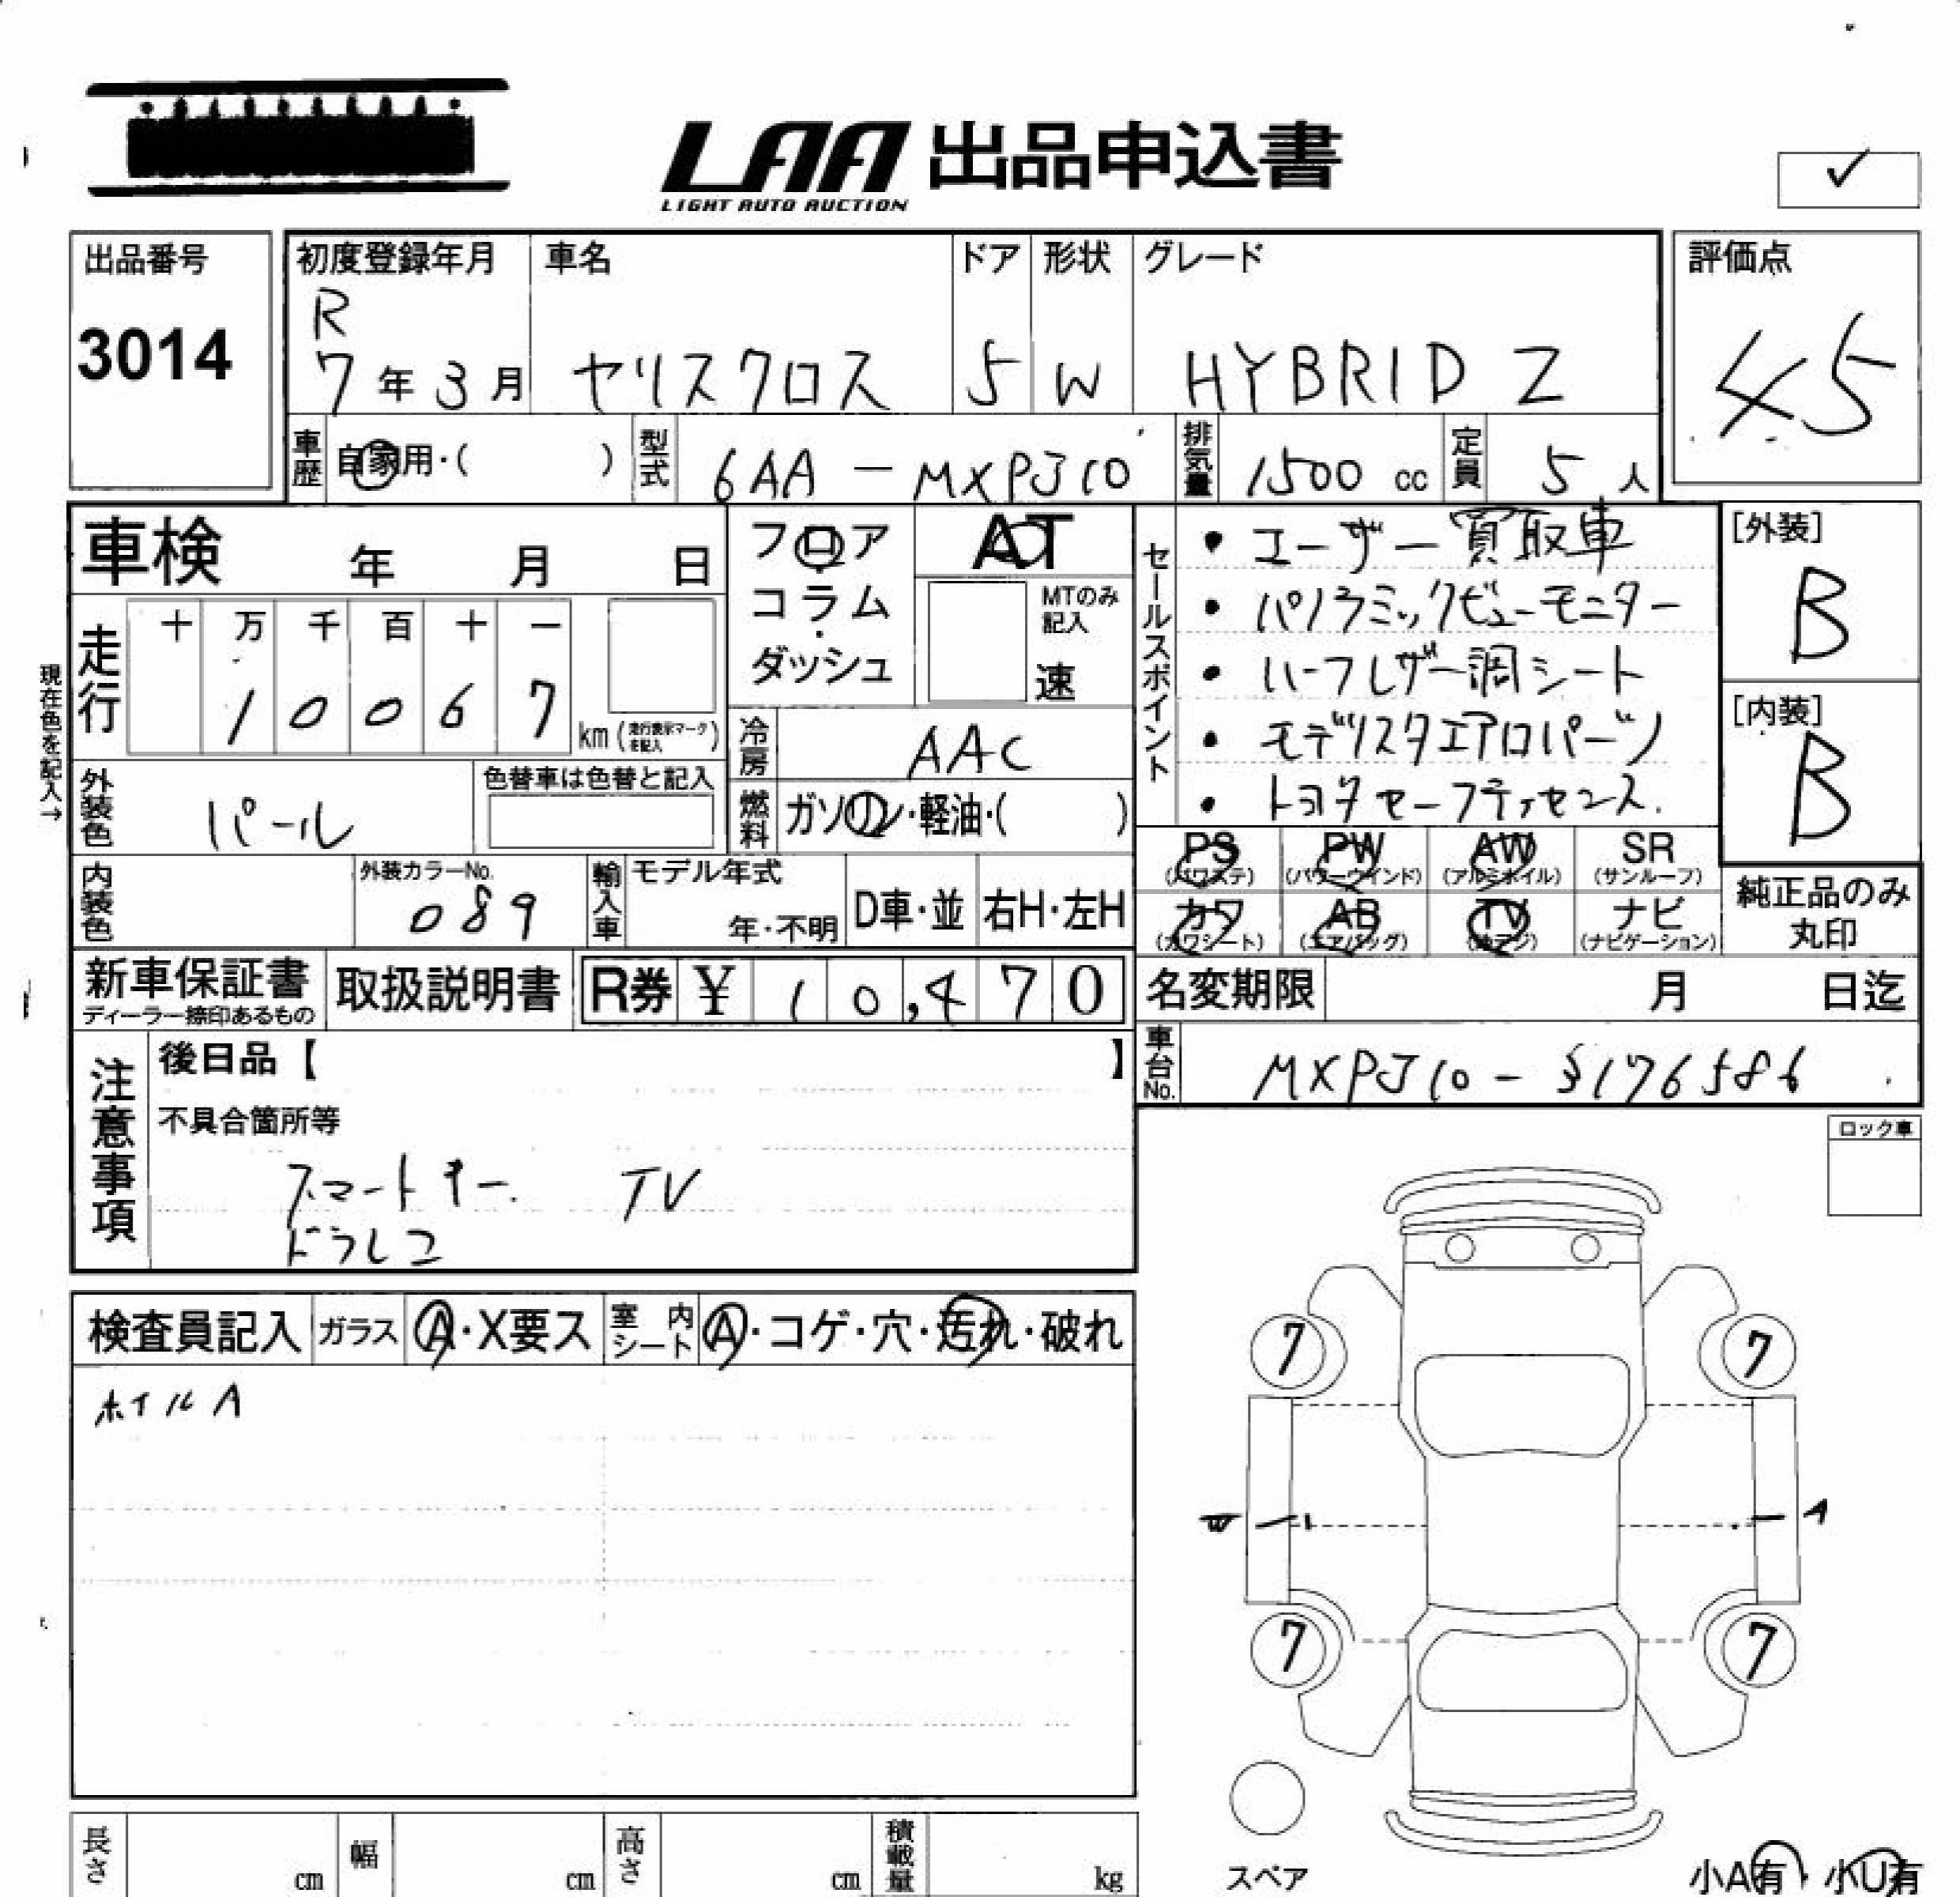 LAA 出品申込書
LIGHT AUTO AUCTION
✓
出品番号
3014
初度登録年月
R
7年3月
車名
ヤリスクロス
ドア
5
形状
W
グレード
HYBRID Z
評価点
4.5
車歴
自家用・( )
型式
6AA - MXPJ10
排気量
1500 cc
定員
5人
車検 年 月 日
フロア・
コラム・
ダッシュ
AT
MTのみ
記入
速
セールスポイント
・ユーザー買取車
・パノラミックビューモニター
・ハーフレザー調シート
・モデリスタエアロパーツ
・トヨタセーフティセンス.
[外装]
B
[内装]
B
現在色を記入→
走行
十 万 千 百 十 一
1 0 0 6 7
km (走行表示マークを記入)
冷房
AAC
外装色
パール
色替車は色替と記入
燃料
ガソリン・軽油・( )
内装色
外装カラーNo.
089
輸入車
モデル年式
年・不明
D車・並
右H・左H
PS
(パワステ)
PW
(パワーウインド)
AW
(アルミホイル)
SR
(サンルーフ)
カワ
(カワシート)
AB
(エアバッグ)
TV
(地デジ)
ナビ
(ナビゲーション)
純正品のみ
丸印
新車保証書
ディーラー捺印あるもの
取扱説明書
R券 ¥ 10,470
名変期限 月 日迄
車台No.
MXPJ10 - 3176586
注意事項
後日品【 】
不具合箇所等
スマートキー. TV
ドラレコ
ロック車
検査員記入
ガラス
A・X要ス
室内シート
A・コゲ・穴・汚れ・破れ
ホイルA
7 7
W A
7 7
スペア
小A有・小U有
長さ cm
幅 cm
高さ cm
積載量 kg